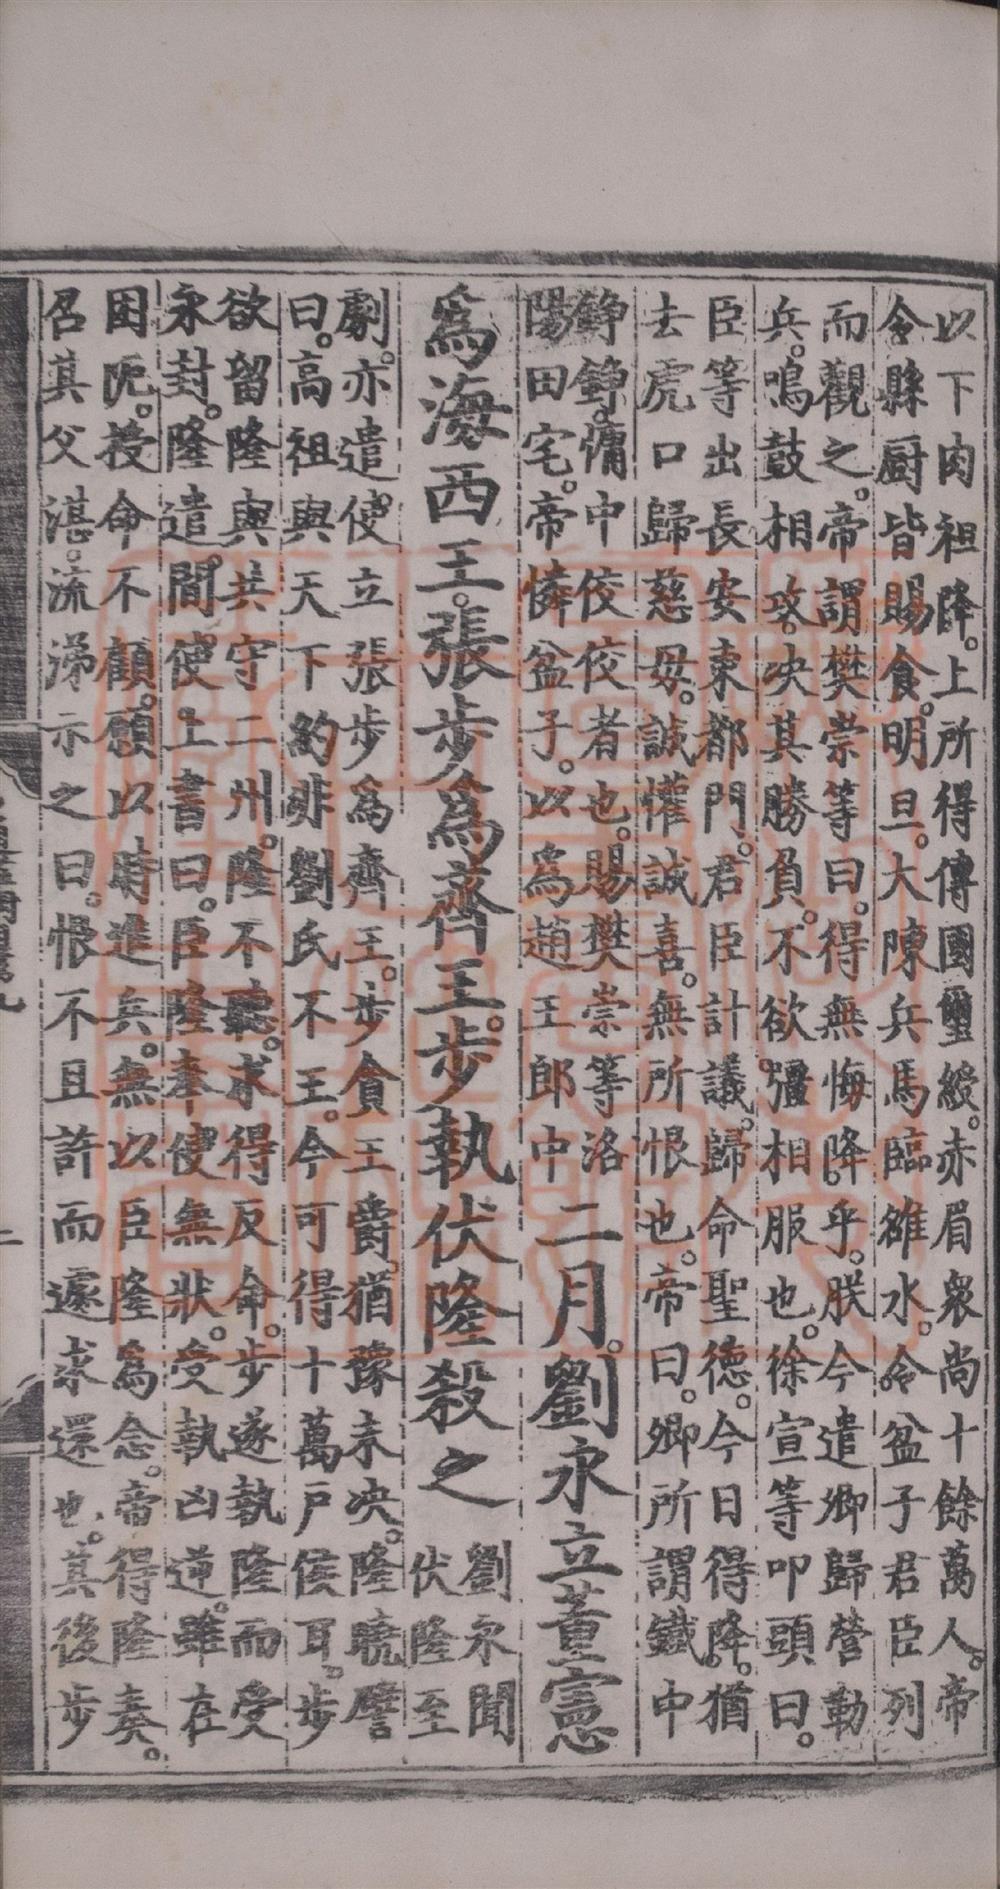 以下肉袒降。上所得傳國璽綬。赤眉衆尚十餘萬人。帝
令縣厨皆賜食。明旦。大陳兵馬臨雒水。令盆子君臣列
而觀之。帝謂樊崇等曰。得無悔降乎。朕今遣卿歸營勒
兵。鳴鼓相攻。决其勝負。不欲彊相服也。徐宣等叩頭曰。
臣等出長安東都門。君臣計議。歸命聖德。今日得降。猶
去虎口歸慈母。誠懽誠喜。無所恨也。帝曰。卿所謂鐵中
錚錚。慵中佼佼者也。賜樊崇等洛
陽田宅。帝憐盆子。以爲趙王郎中
二月。劉永立董憲
爲海西王。張步爲齊王。步執伏隆殺之
劉永聞
伏隆至
劇。亦遣使。立張步爲齊王。步貪王爵。猶豫未决。隆曉譬
曰。高祖與天下約。非劉氏不王。今可得十萬戸侯耳。步
欲留隆與共守二州。隆不聽。求得反命。步遂執隆而受
永封。隆遣間使。上書曰。臣隆奉使無狀。受執凶逆。雖在
困阨。授命不顧。願以時進兵。無以臣隆爲念。帝得隆奏。
召其父湛。流涕示之曰。恨不且許而遽求還也。其後步